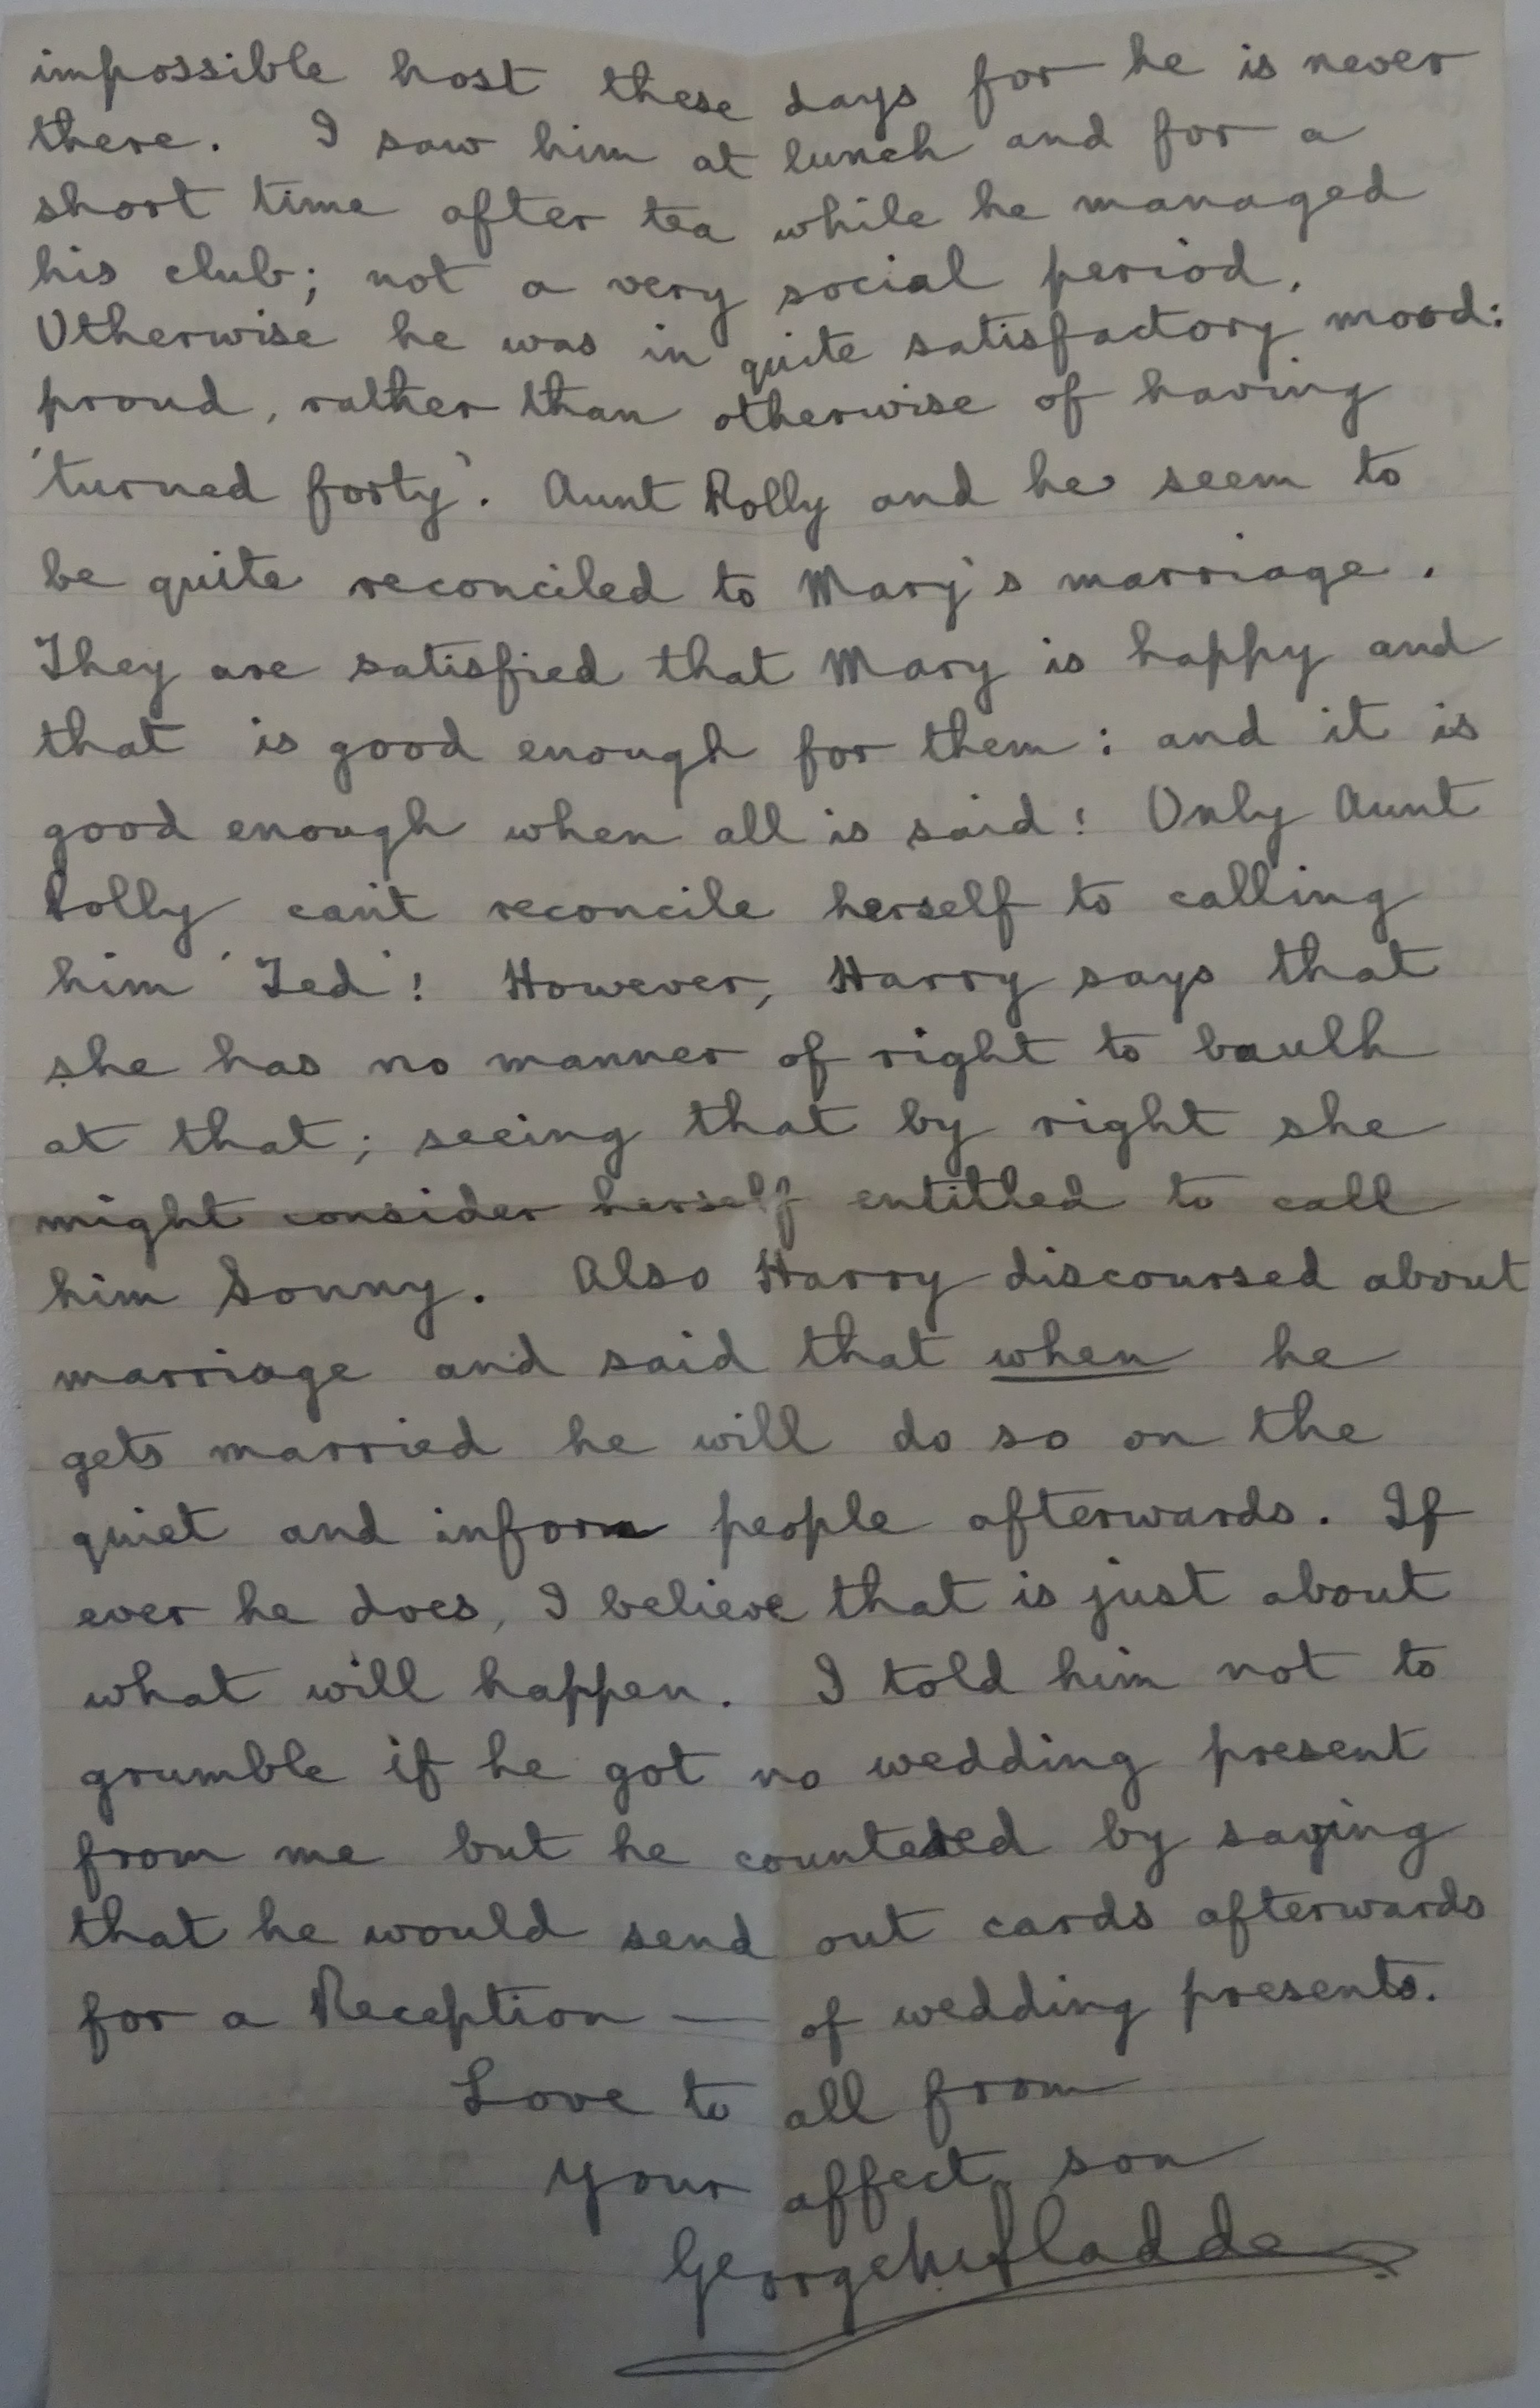 impossible host these days for he is never
there. I saw him at lunch and for a
short time after tea while he managed
his club; not a very social period.
Otherwise he was in quite satisfactory mood:
proud, rather than otherwise of having
'turned forty'. Aunt Polly and he seem to
be quite reconciled to Mary's marriage.
They are satisfied that Mary is happy and
that is good enough for them: and it is
good enough when all is said! Only Aunt
Polly can't reconcile herself to calling
him 'Ted'! However, Harry says that
she has no manner of right to baulk
at that; seeing that by right she
might consider herself entitled to call
him Sonny. Also Harry discoursed about
marriage and said that when he
gets married he will do so on the
quiet and inform people afterwards. If
ever he does, I believe that is just about
what will happen. I told him not to
grumble if he got no wedding present
from me but he countered by saying
that he would send out cards afterwards
for a Reception — of wedding presents.
Love to all from
your affect. son